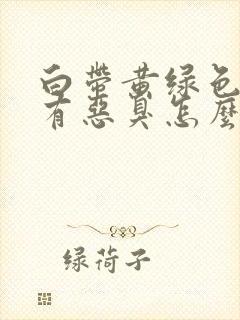 白带黄绿色
有恶臭怎麽
绿荷子